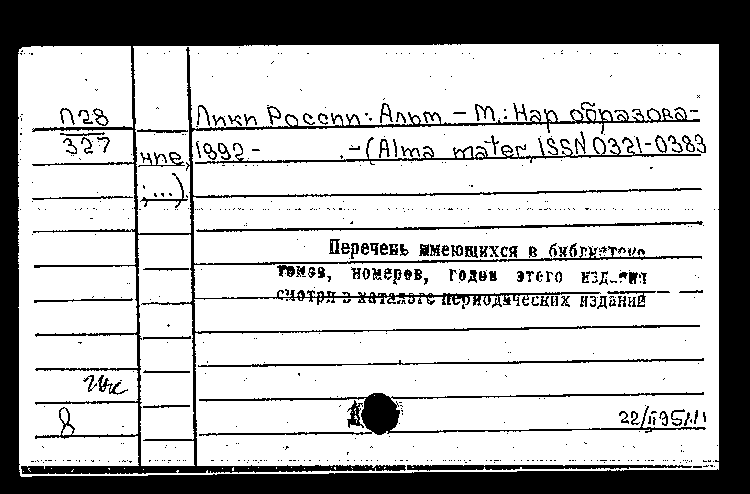 П28 Лики России: Альм – М.: Нар образова-
327 ние, 1992 – . – (Alma mater, ISSN 0321-0383
;...)
Перечень имеющихся в библиотеке
томов, номеров, годов этого издания
смотри в каталоге периодических изданий
8